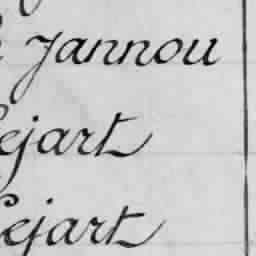 Jannou
Lejart
Lejart